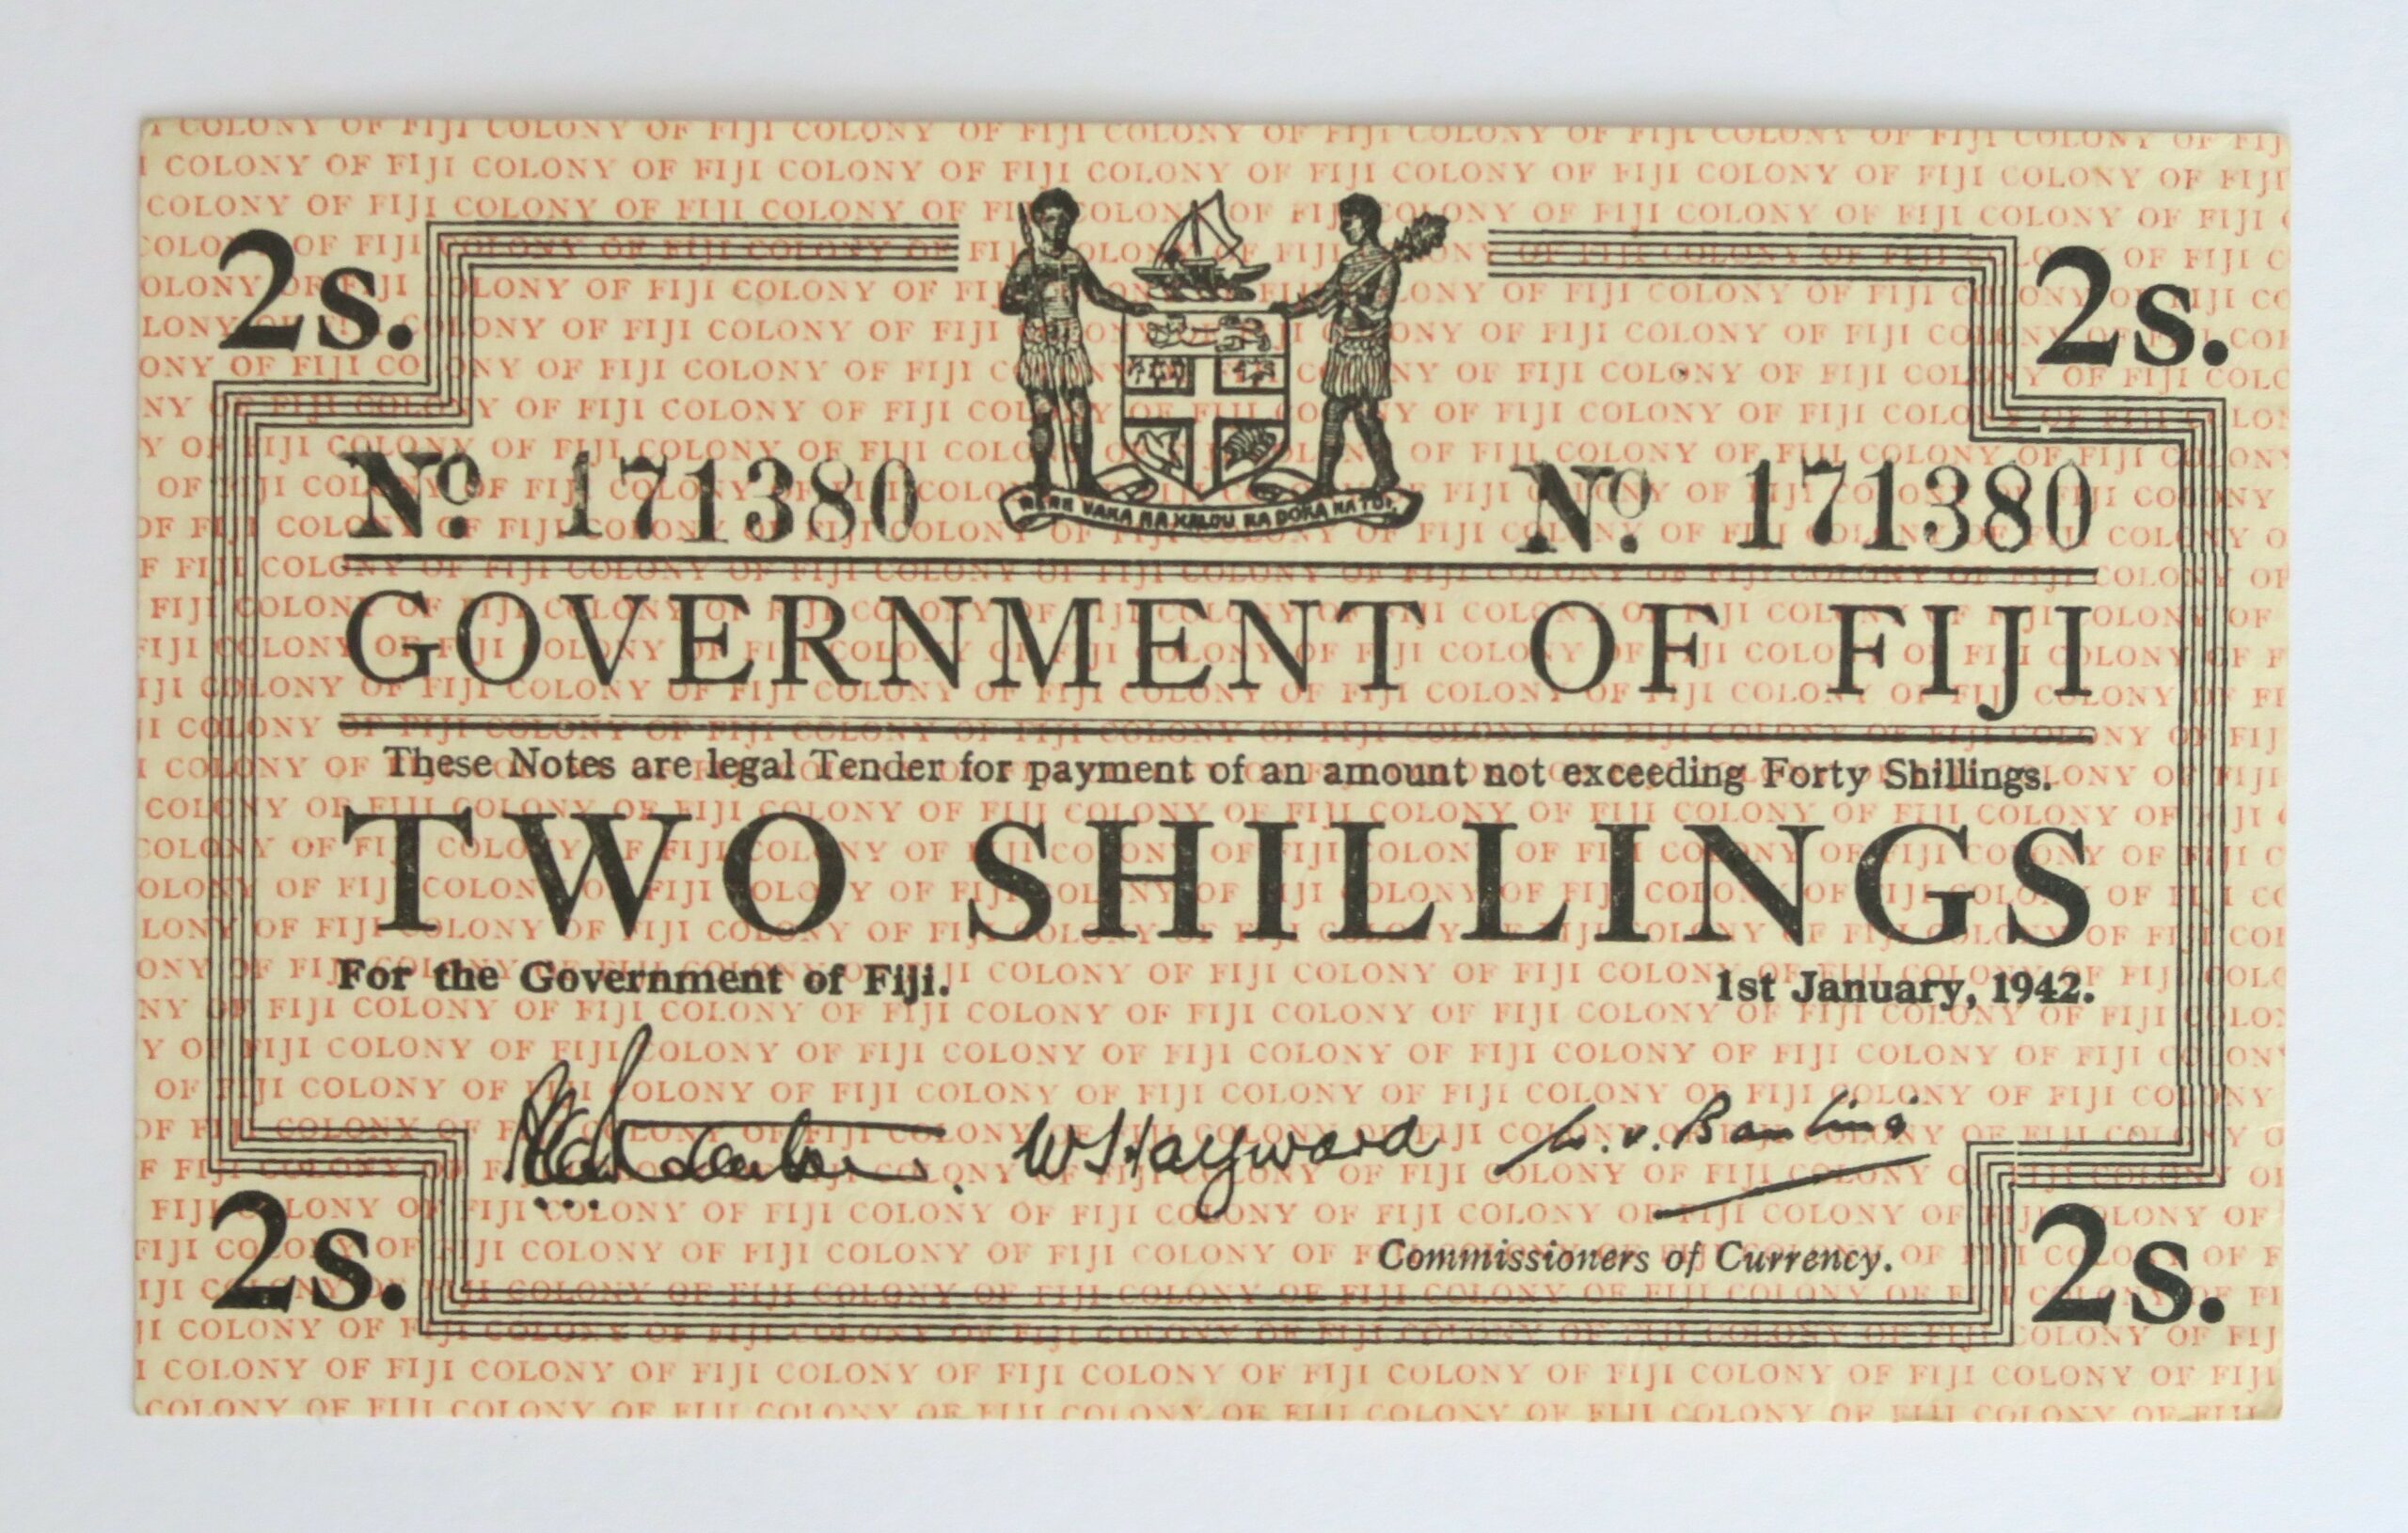 2s. 2s.
RERE VAKA NA KALOU KA DOKA NA TUI.
No. 171380 No. 171380
GOVERNMENT OF FIJI
These Notes are legal Tender for payment of an amount not exceeding Forty Shillings.
TWO SHILLINGS
For the Government of Fiji. 1st January, 1942.
W Hayward
Commissioners of Currency.
2s. 2s.
COLONY OF FIJI COLONY OF FIJI COLONY OF FIJI COLONY OF FIJI COLONY OF FIJI COLONY OF FIJI COLONY OF FIJI